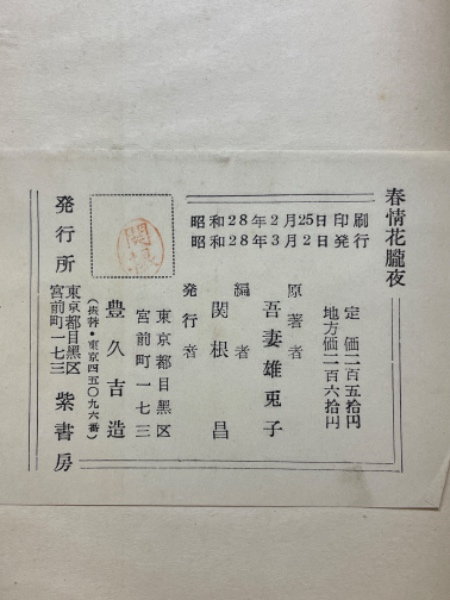 春情花朧夜
定価二百五拾円
地方価二百六拾円
昭和28年2月25日印刷
昭和28年3月2日発行
原著者
吾妻雄兎子
編者
関根昌
発行者
東京都目黒区
宮前町一七三
豊久吉造
(振替・東京四五〇九六番)
発行所
東京都目黒区
宮前町一七三
紫書房